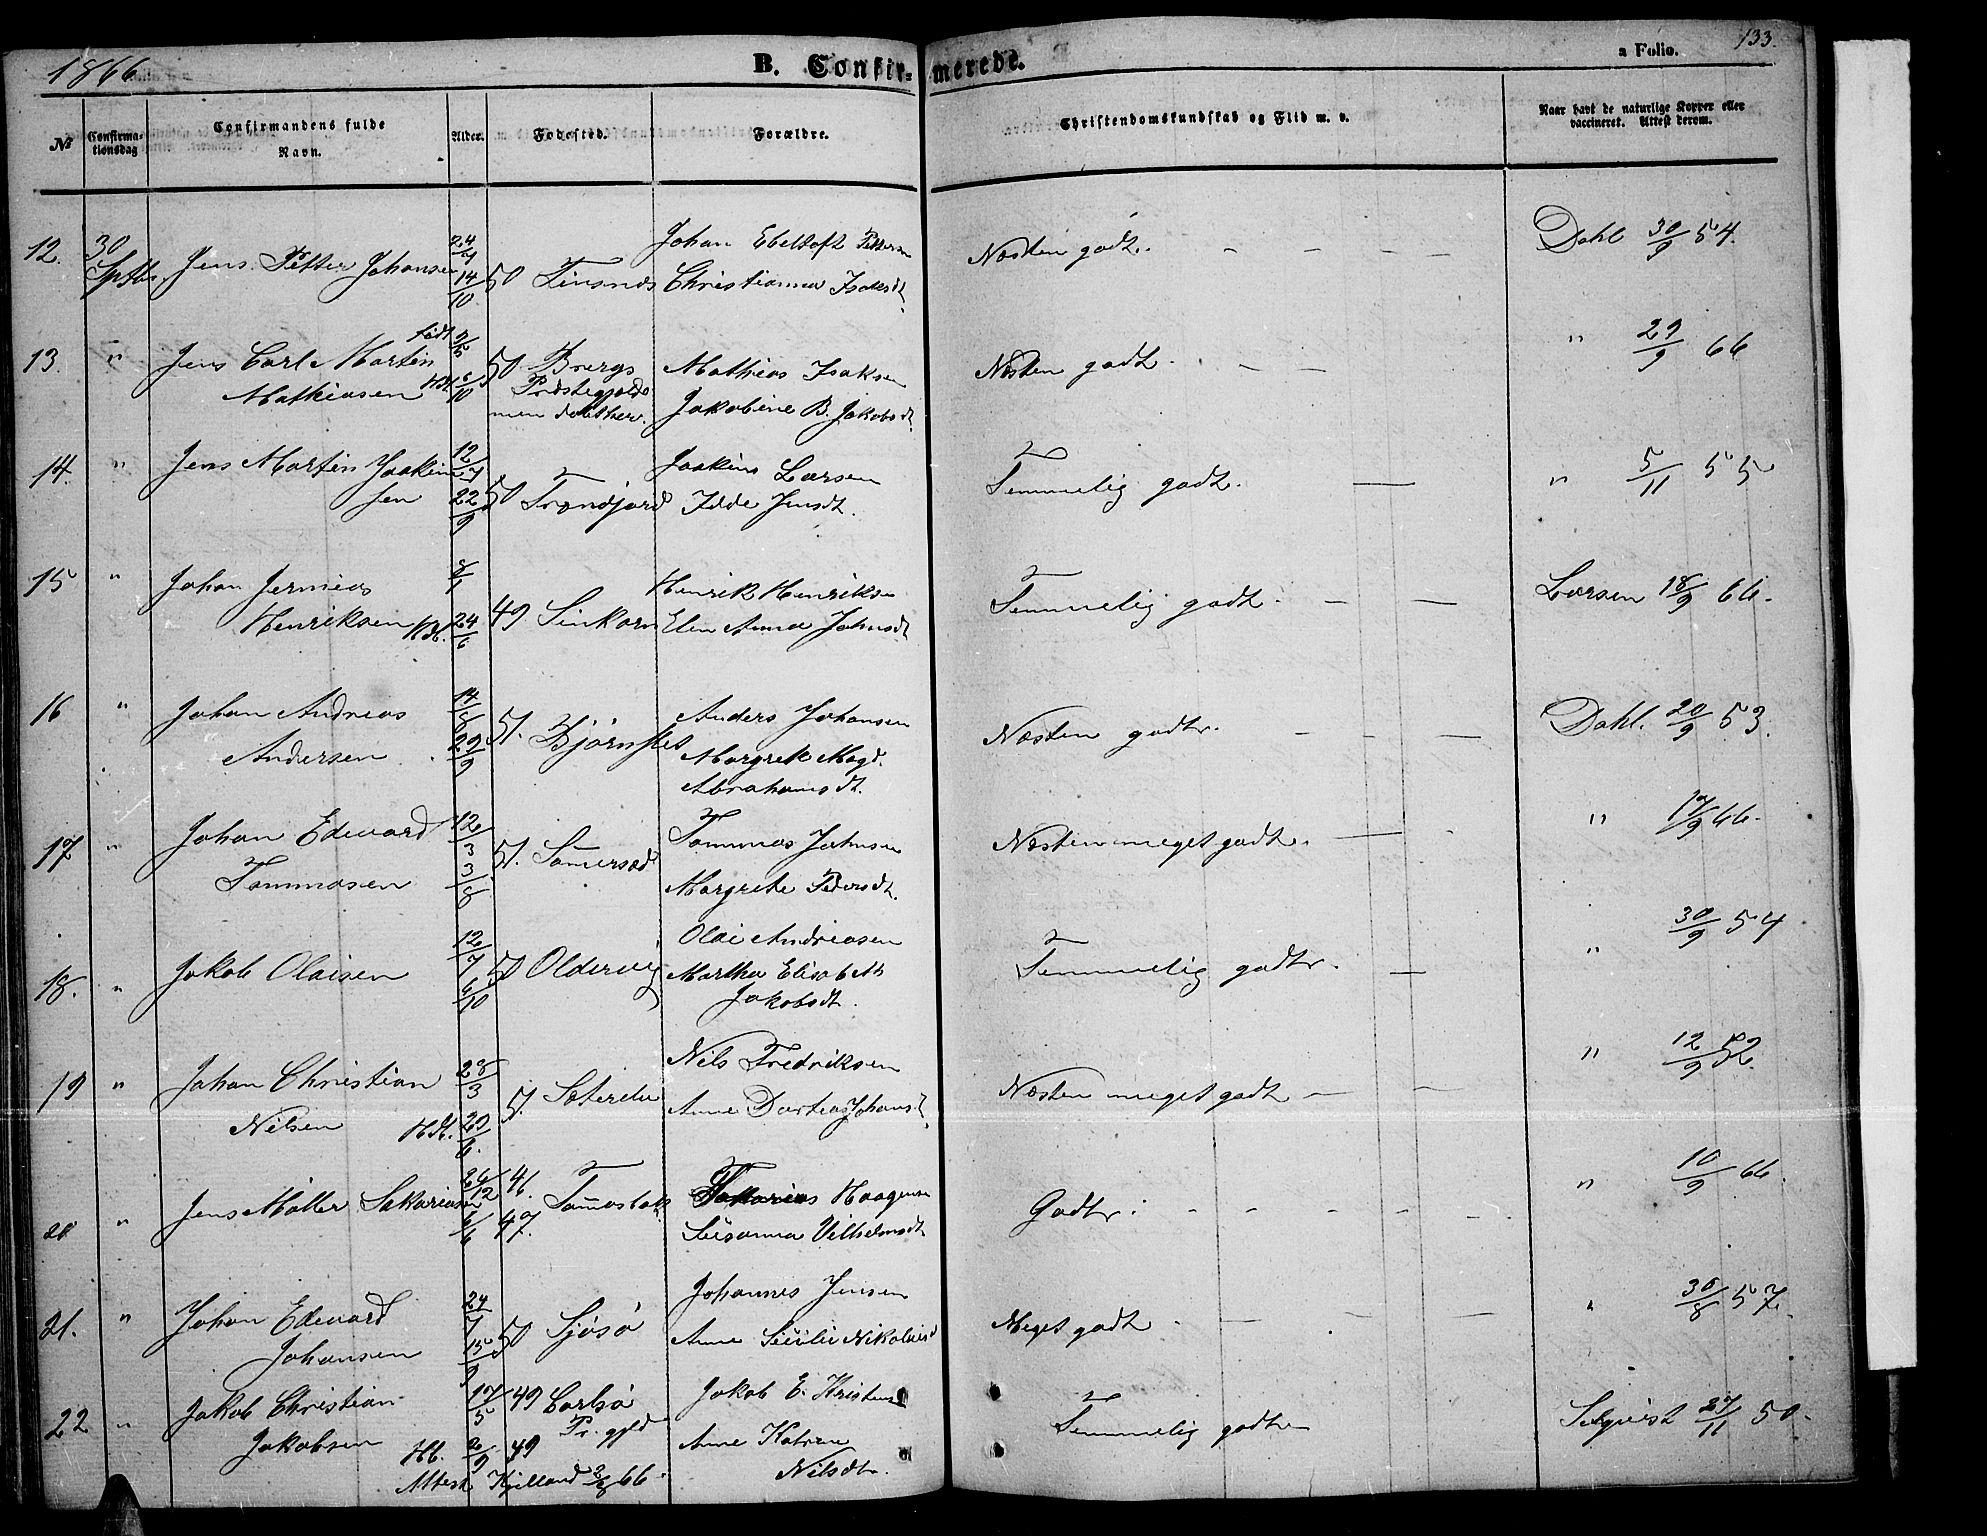 1866
B. Confir-
merede.
a Folio. 133.
No
Confirma-
tionsdag
Confirmandens fulde
Navn.
Alder.
Fødested.
Forældre.
Christendomskundskab og Flid m. v.
Naar havt de naturlige Kopper eller
vaccineret. Attest derom.
12. 30 Septbr. Jens Petter Johansen 24/9 14/10 50 Finsnes
Johan Ebeltoft Pettersen
Christianna Isaksdt.
Næsten godt. - - - -
Dahl 30/9 54.
13. " Jens Carl Martin født
Mathiasen Hdt. 6/10 50
Bergs
Præstegjeld
Mathias Isaksen
Jakobine B. Jakobsdt.
Næsten godt. - -
" 29/9 66
14. " Jens Martin Joakim
sen 12/7 22/9 50 Trondjord
Joakim Larsen
Idde Jensdt.
Temmelig godt. -
" 5/11 55
15 " Johan Jermias
Henriksen Hdt. 8/1 24/6 49 Finkorn
Henrik Henriksen
Elen Anna Johnsdt
Temmelig godt. - -
Larsen 18/9 66.
16 " Johan Andreas
Andersen 14/8 29/9 51.
Anders Johansen
Margrete Magd.
Abrahamsdt.
Næsten godt. - - - -
Dahl. 20/9 53.
17 " Johan Edevard
Tommasen 12/3 3/8 51. Somersæd
Tommas Johnsen
Margrete Pedersdt.
Næsten meget godt. - -
" 17/9 66.
18. " Jakob Olaisen 12/7 6/10 50 Oldervig
Olai Andreasen
Martha Elisabeth
Jakobsdt.
Temmelig godt. -
" 30/9 54
19 " Johan Christian
Nilsen Hdt. 28/3 29/6. 51. Sætereln
Nils Fredriksen
Anne Dortea Johansdt
Næsten meget godt - -
" 12/9 52.
20 " Jens Møller Sakariasen 26/12 46. 6/6 47.
Haagensen
Susanna Vilhelmsdt
Godt. - - - - - -
" 10/9 66.
21. " Johan Edevard
Johansen 24/7 15/9 50 Sjøsø
Johannes Jensen
Anne Sesilie Nikolaisd
Meget godt. - - -
" 30/8 57.
22 " Jakob Christian
Jakobsen Hdt. 17/5 49 2/9 49
Carlsø
Pr. gjeld
Jakob E. Kristens
Anne Katrine
Nilsdt.
Attest Kjelland 66.
Temmelig godt -
Selqvist 27/11 50.